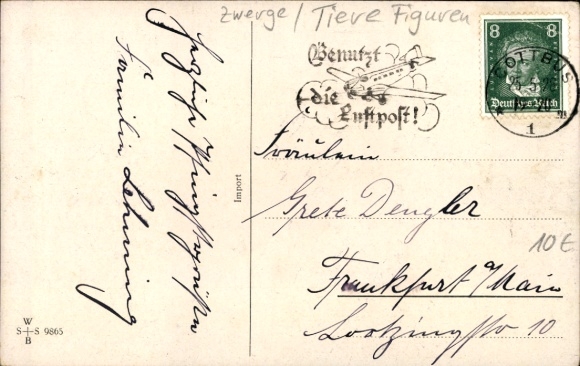 Zwerge / Tiere Figuren
Herzliche Pfingstgrüße
Familie Lehmann
Benutzt
die
Luftpost!
8 8
Deutsches Reich
COTTBUS
1
Fräulein
Grete Dengler
Frankfurt a/Main
Lortzingstr 10
10 €
Import
W
S S 9865
B